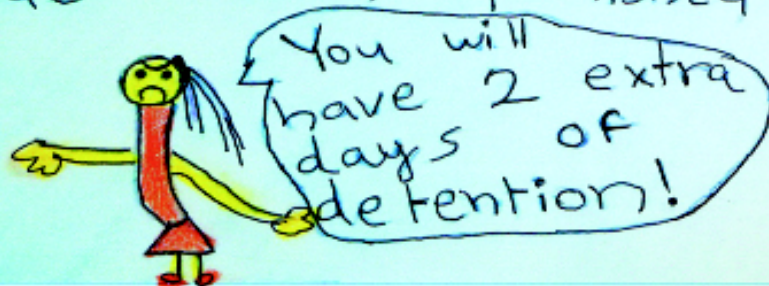 You will
have 2 extra
days of
detention!